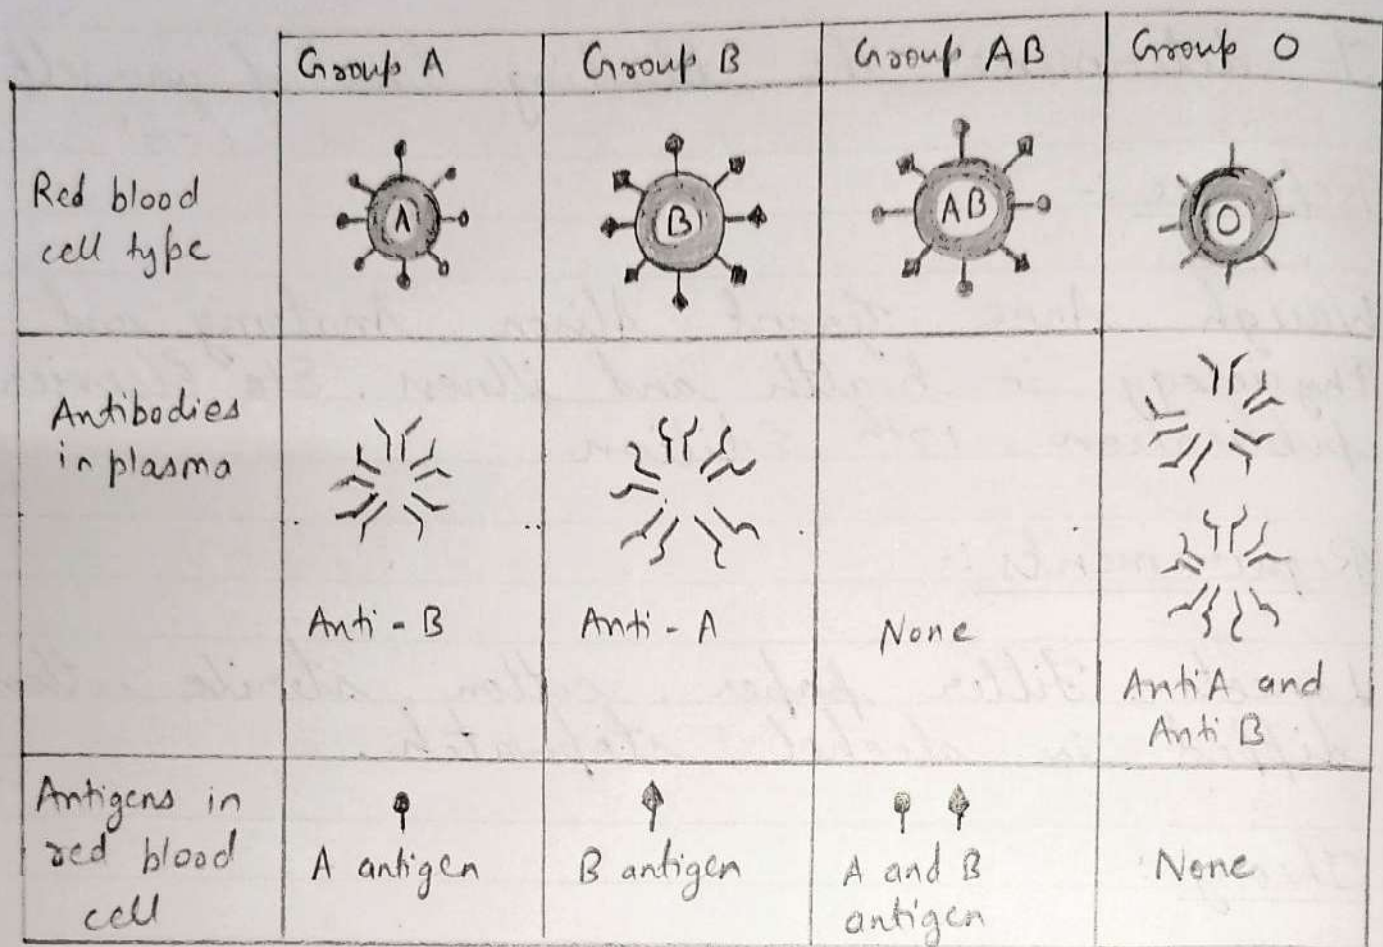 Group A
Group B
Group AB
Group O
Red blood
cell type
A
B
AB
O
Antibodies
in plasma
Anti - B
Anti - A
None
Anti A and
Anti B
Antigens in
red blood
cell
A antigen
B antigen
A and B
antigen
None